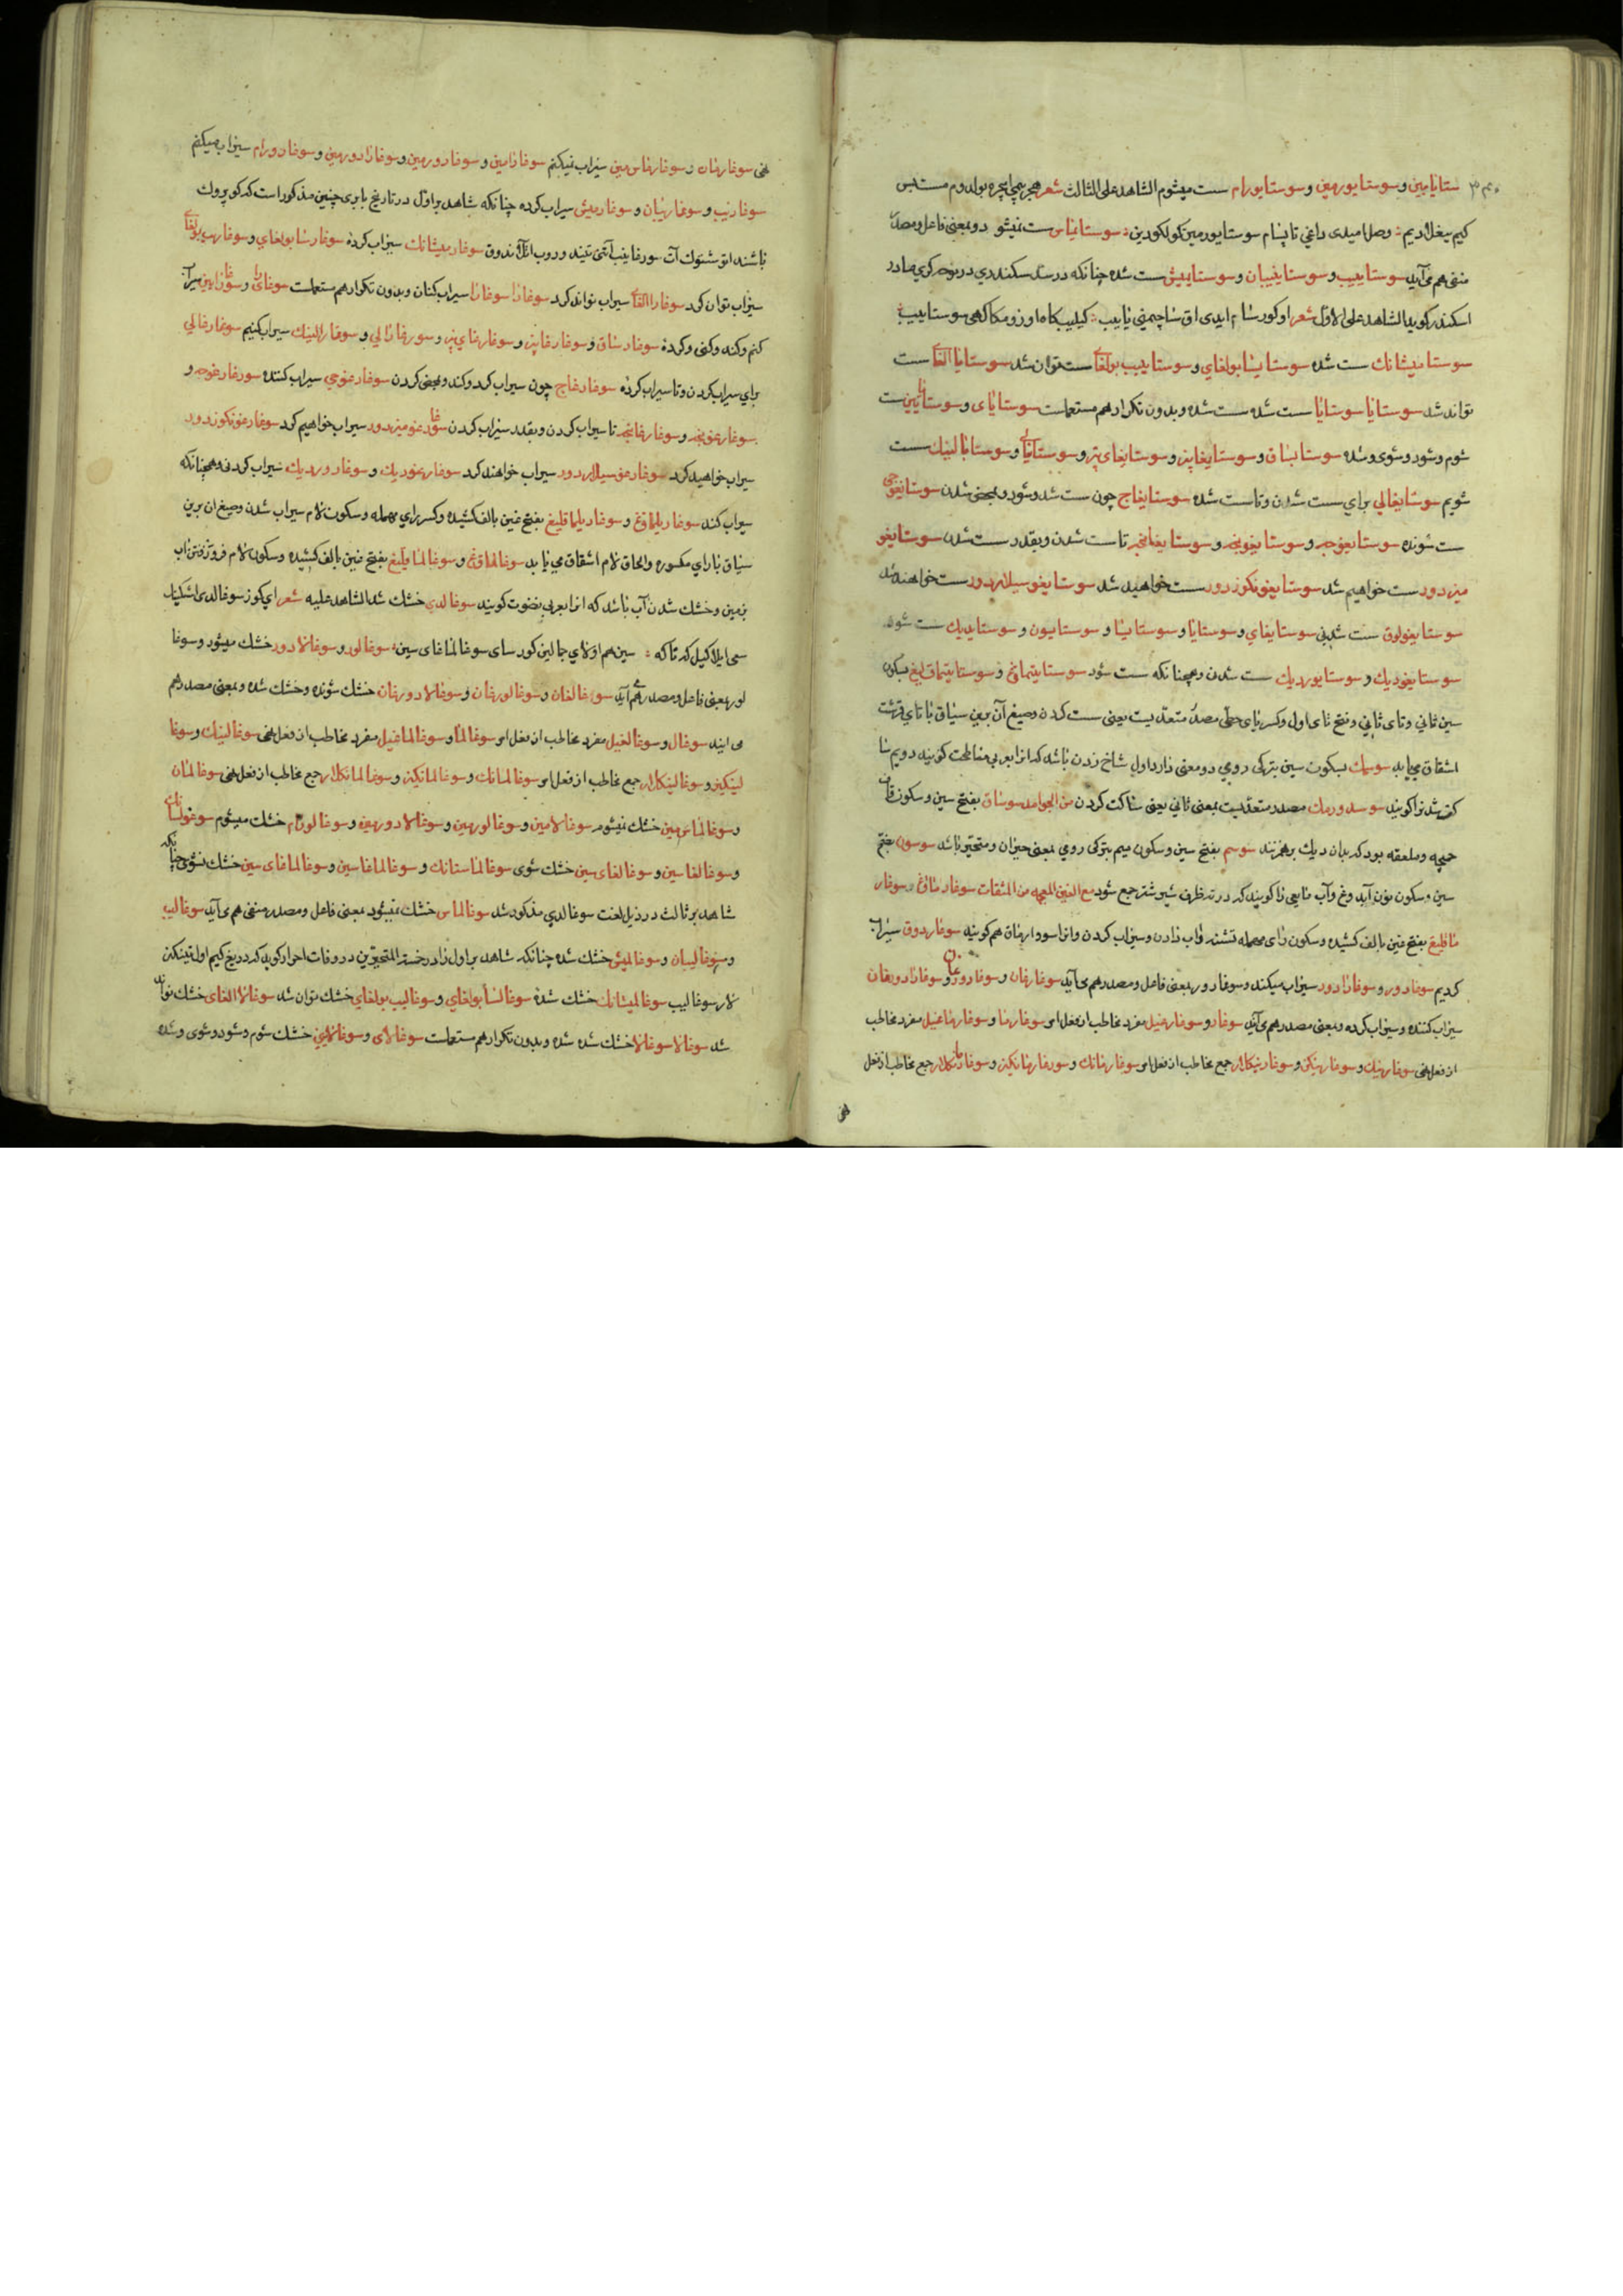 ستایامین و سوستایورمین و سوستایورام ست میشوم الشاهد علی الثالث شعر هجر بولدوم مست بس
کیم وصل امیدی داغی تاپسام سوستایورمین کولکودین سوستایماس ست نمیشود و بمعنی فاعل و مصدر
منفی هم می‌آید سوستاییب و سوستاییبان و سوستایمیش ست شده چنانکه در سد سکندری در نوحه کری مادر
اسکندر کوید الشاهد علی الاول شعر سوستاییب
سوستامیشانک ست شده سوستایسا بولغای و سوستاییب بولغای ست توان شد سوستایا الغای ست
تواند شد سوستایا سوستایا ست شده ست شده و بدون تکرار هم مستعملست سوستایای و سوستایایین ست
شوم و شود و شوی و شده سوستایساق و سوستایغابیز و سوستایغای بیز و سوستایالی و سوستایالینک ست
شویم سوستایغالی برای ست شدن و تا ست شده سوستایغاج چون ست شد و شود و بمحض شدن سوستایغوجی
ست شونده سوستایغوجه و سوستایغونجه و سوستایغانجه تا ست شدن و بقدر ست شدن سوستایغو
میزدور ست خواهیم شد سوستایغونکوزدور ست خواهید شد سوستایغوسیلاردور ست خواهند شد
سوستایغولوق ست شدنی سوستایغای و سوستایا و سوستایسا و سوستایسون و سوستایدیک ست شود
سوستایغودیک و سوستایوردیک ست شدن و همچنانکه ست شود سوستایتماق و سوستایتماقلیغ بسکون
سین ثانی و تای ثانی و فتح تای اول و کسر یای حطی مصدر متعدیست یعنی ست کردن و صیغ آن برین سیاق با تای قرشت
اشتقاق می‌یابد سوسمک بسکون سین بترکی رومی دو معنی دارد اول شاخ زدن باشد که انرا بعربی مناطحت کویند دویم
کویند سوسدورمک مصدر متعدیست بمعنی ثانی یعنی ساکت کردن من الجوامد سوساق بفتح سین و سکون قاف
چمچه و ملعقه بود که بدان دیک برهم زنند سوسم بفتح سین و سکون میم بترکی رومی بمعنی حیران و متحیر باشد سوسون بفتح
سین و سکون نون آب دوغ و آب مایعی را کویند که در ته ظرف شیر شتر جمع شود مع الغین المعجمه من المشتقات سوغارماق و سوغار
ماقلیغ بفتح غین بالف کشیده و سکون رای مهمله تشنه را آب دادن و سیراب کردن و انرا سودارماق هم کویند سوغاردوق سیراب
کردیم سوغارور و سوغارادور سیراب میکند و سوغارور بمعنی فاعل و مصدر هم می‌آید سوغارغان و سوغارورغان و سوغارادورغان
سیراب کننده و سیراب کرده و بمعنی مصدر هم می‌آید سوغار و سوغارغیل مفرد مخاطب از فعل امر سوغارما و سوغارماغیل مفرد مخاطب
از فعل نهی سوغارینک و سوغارینکیز و سوغارینکلار جمع مخاطب از فعل امر سوغارمانک و سوغارمانکیز و سوغارمانکلار جمع مخاطب از فعل
نهی
نهی سوغارمان و سوغارماس‌مین سیراب نمیکنم سوغارامین و سوغارورمین و سوغارادورمین و سوغارورام سیراب میکنم
سوغاریب و سوغاریبان و سوغارمیش سیراب کرده چنانکه شاهد بر اول در تاریخ بابری چنین مذکور است که
سوغارمیشانک سیراب کرده سوغارسا بولغای و سوغاریب بولغای
سیراب توان کرد سوغارا الغای سیراب تواند کرد سوغارا سوغارا سیراب کنان و بدون تکرار هم مستعملست سوغارای و سوغارایین سیراب
کنم و کند و کنی و کرده سوغارساق و سوغارغابیز و سوغارغای بیز و سوغارالی و سوغارالینک سیراب کنیم سوغارغالی
برای سیراب کردن و تا سیراب کرده سوغارغاج چون سیراب کرد و کند و بمحض کردن سوغارغوجی سیراب کننده سوغارغوجه و
سوغارغونجه و سوغارغانجه تا سیراب کردن و بقدر سیراب کردن سوغارغومیزدور سیراب خواهیم کرد سوغارغونکوزدور
سیراب خواهید کرد سوغارغوسیلاردور سیراب خواهند کرد سوغارغودیک و سوغاروردیک سیراب کردن و همچنانکه
سیراب کند سوغاریلماق و سوغاریلماقلیغ بفتح غین بالف کشیده و کسر رای مهمله و سکون لام سیراب شدن و صیغ ان برین
سیاق با رای مکسوره و الحاق لام اشتقاق می‌یابد سوغالماق و سوغالماقلیغ بفتح غین بالف کشیده و سکون لام فرو رفتن آب
بزمین و خشک شدن آب باشد که انرا بعربی نضوب کویند سوغالدی خشک شد الشاهد علیه شعر ای کوز سوغالدی اشکینک
سوغالور و سوغالادور خشک میشود و سوغا
لور بمعنی فاعل و مصدر هم می‌آید سوغالغان و سوغالورغان و سوغالادورغان خشک شونده و خشک شده و بمعنی مصدر هم
می‌ایند سوغال و سوغالغیل مفرد مخاطب از فعل امر سوغالما و سوغالماغیل مفرد مخاطب از فعل نهی سوغالینک و سوغا
لینکیز و سوغالینکلار جمع مخاطب از فعل امر سوغالمانک و سوغالمانکیز و سوغالمانکلار جمع مخاطب از فعل نهی سوغالمان
و سوغالماس‌مین خشک نمیشوم سوغالامین و سوغالورمین و سوغالادورمین و سوغالورام خشک میشوم
و سوغالغاسین و سوغالغای‌سین خشک شوی سوغالماسانک و سوغالماغاسین و سوغالماغای‌سین خشک نشوی چنانکه
شاهد بر ثالث در ذیل لغت سوغالدی مذکور شد سوغالماس خشک نمیشود بمعنی فاعل و مصدر منفی هم می‌آید سوغالیب
و سوغالیبان و سوغالمیش خشک شده چنانکه شاهد بر اول را در خسة المتحیرین در وفات احرار کوید که
لار سوغالیب سوغالمیشانک خشک شده سوغالسا بولغای و سوغالیب بولغای خشک توان شد سوغالا الغای خشک تواند
شد سوغالا سوغالا خشک شده شده و بدون تکرار هم مستعملست سوغالای و سوغالایین خشک شوم و شود و شوی و شده